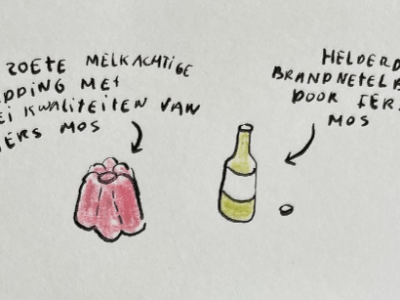 ZOETE MELKACHTIGE
DDING MET
EI KWALITEITEN VAN
ERS MOS
HELDERD
BRANDNETELB
DOOR FER
MOS